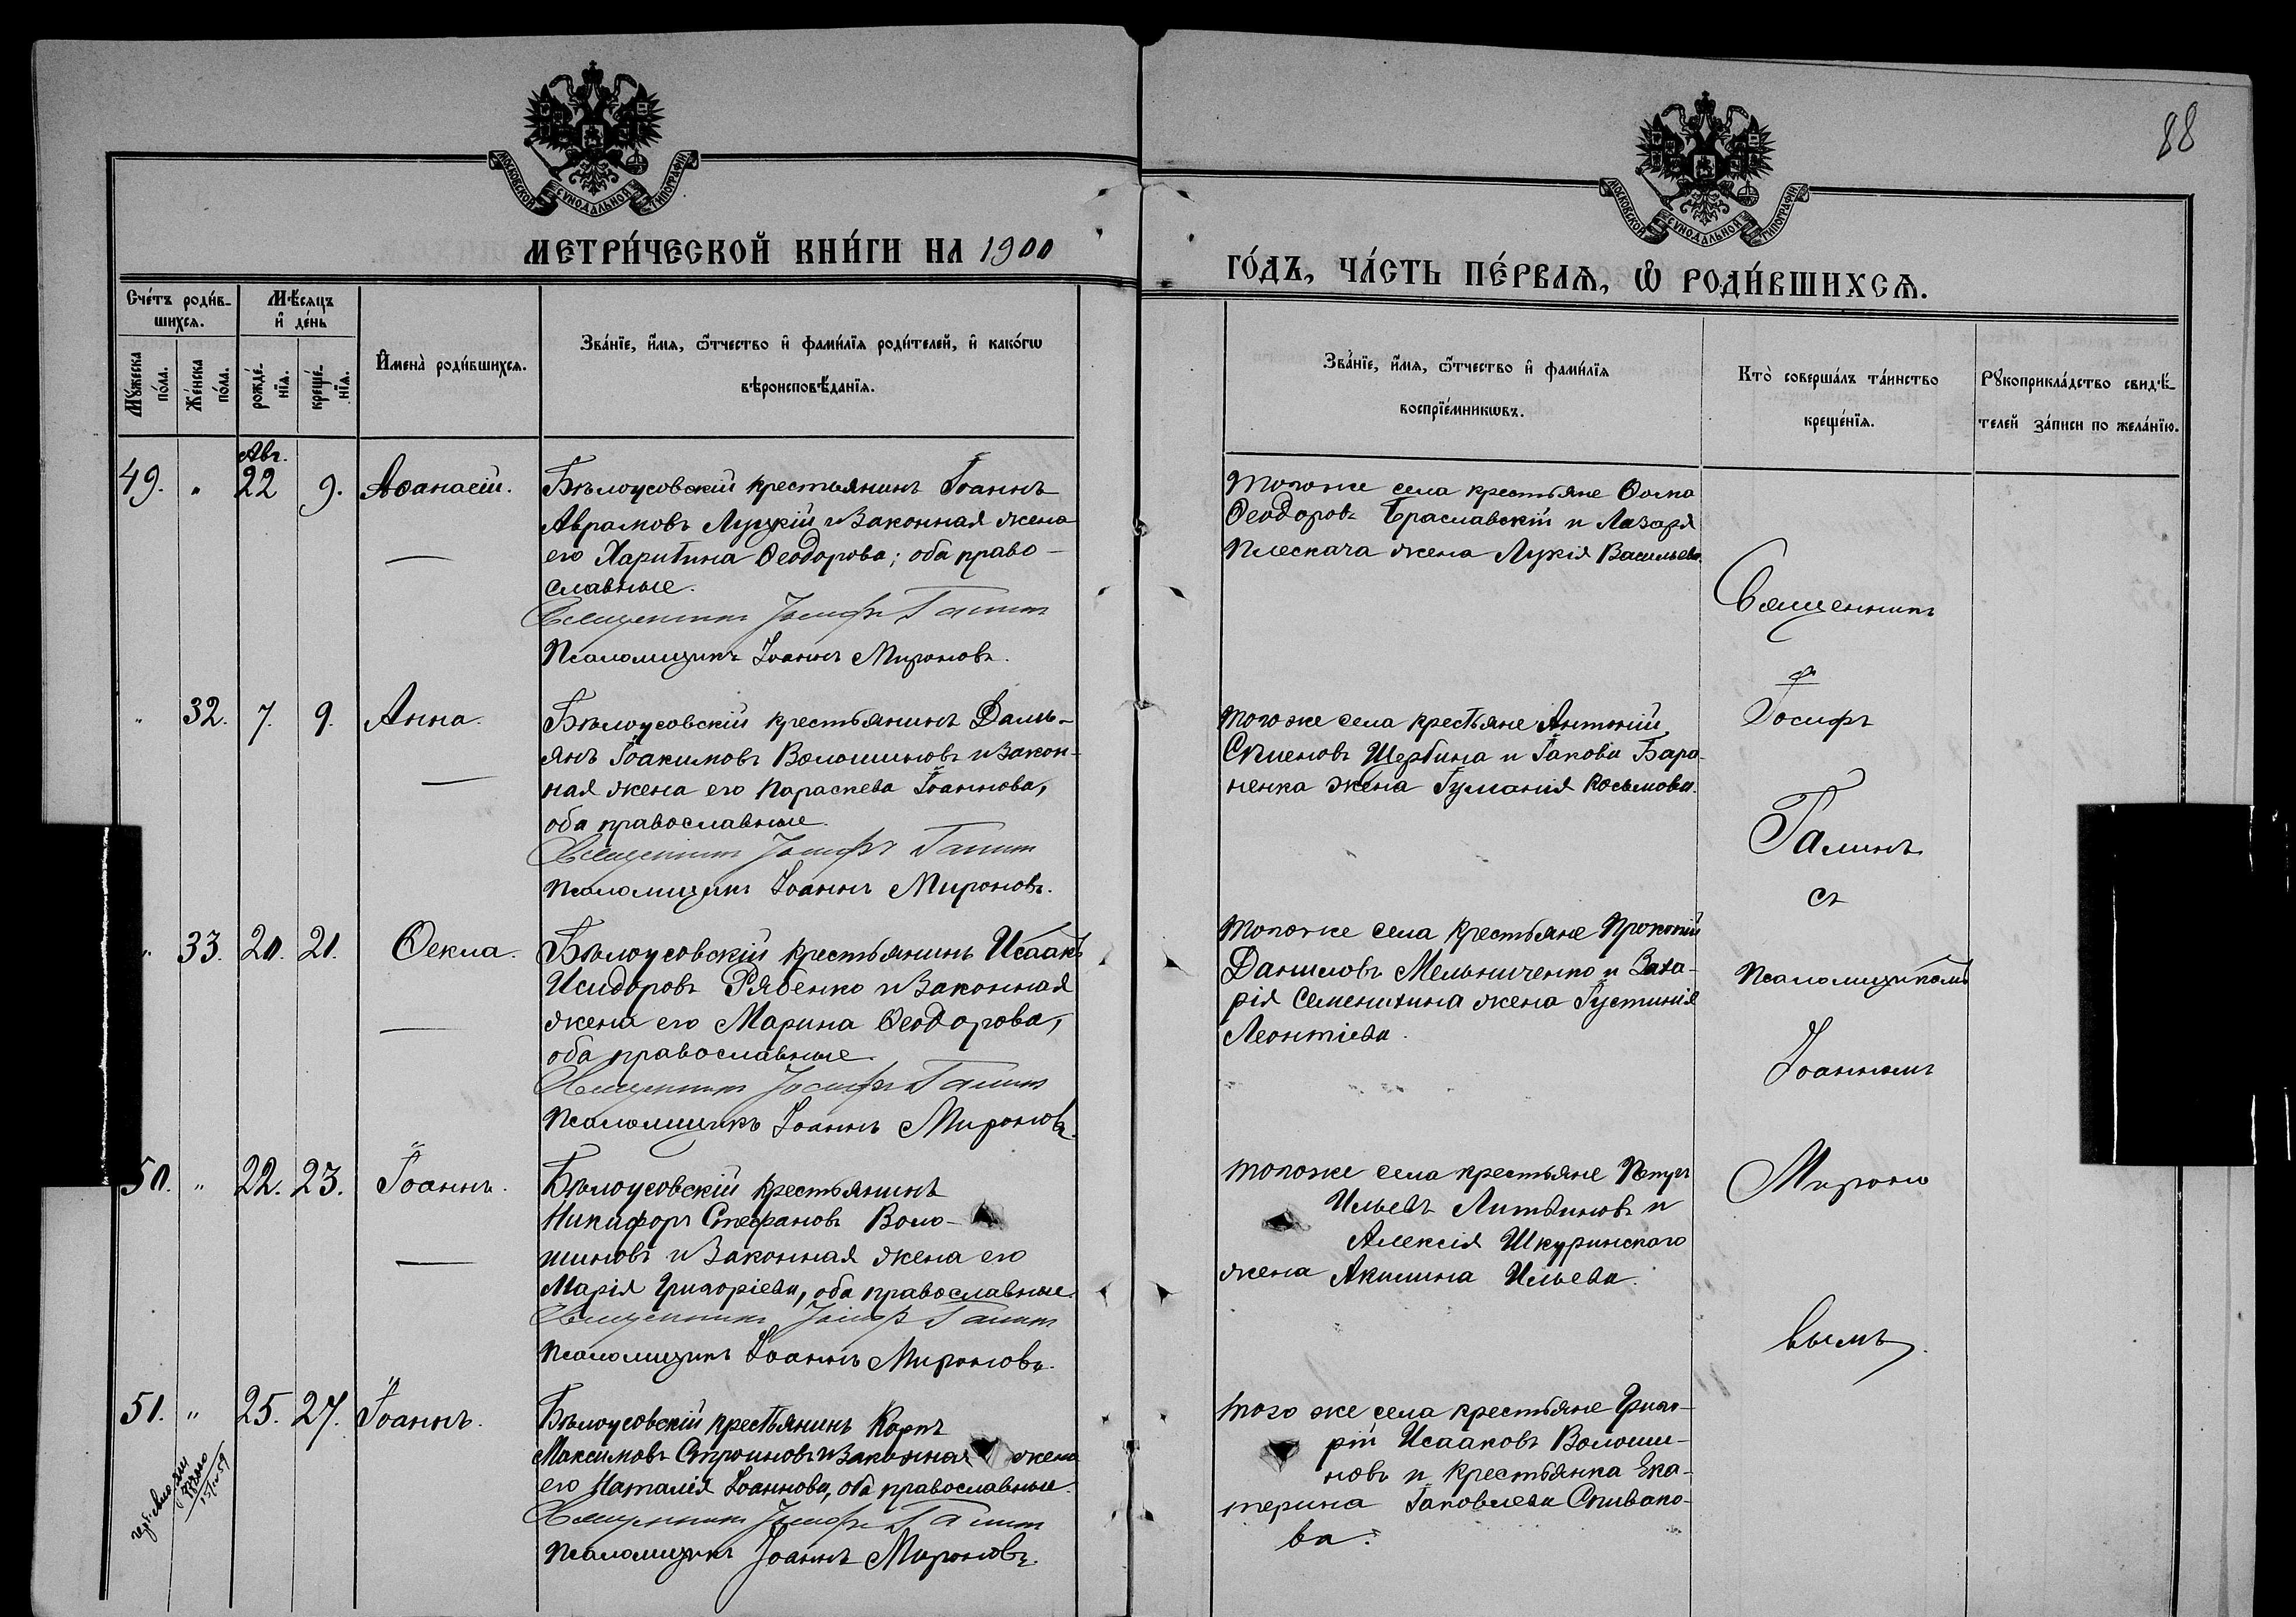 88
МОСКОВСКОЙ СѴНОДАЛЬНОЙ ТИПОГРАФІИ
МОСКОВСКОЙ СѴНОДАЛЬНОЙ ТИПОГРАФІИ
МЕТРИ́ЧЕСКОЙ КНИ́ГИ НА 1900
ГО́ДЪ, ЧА́СТЬ ПЕ́РВАѦ, Ѽ РОДИ́ВШИХСѦ.
Сче́тъ роди́в-
шихсѧ.
Мꙋ́жеска по́ла.
Же́нска по́ла.
Мѣ́сѧцъ
и҆ де́нь
рожде́-
нїѧ.
креще́-
нїѧ.
И҆мена̀ роди́вшихсѧ.
Зва́нїе, и҆́мѧ, ѻ҆́тчество и҆ фами́лїѧ роди́телей, и҆ како́гѡ
вѣроисповѣ́данїѧ.
Зва́нїе, и҆́мѧ, ѻ҆́тчество и҆ фами́лїѧ
воспрїе́мникѡвъ.
Кто̀ соверша́лъ та́инство
креще́нїѧ.
Рꙋкоприкла́дство свидѣ́-
телей за́писи по жела́нїю.
Авг.
49. " 22 9. Аѳанасій.
Бѣлоусовскій крестьянинъ Іоаннъ
Аврамовъ Луцкій и законная жена
его Харитина Ѳеодорова; оба право-
славные.
Священникъ Іосифъ Галинъ
Псаломщикъ Іоаннъ Мироновъ.
Тогоже села крестьяне Ѳома
Ѳеодоровъ Браславскій и Лазаря
Плескача жена Лукія Васильева.
" 32. 7. 9. Анна.
Бѣлоусовскій крестьянинъ Дамі-
янъ Іоакимовъ Волошиновъ и закон-
ная жена его Параскева Іоаннова,
оба православные.
Священникъ Іосифъ Галинъ
Псаломщикъ Іоаннъ Мироновъ.
Того же села крестьяне Антоній
Семеновъ Щербина и Іакова Бара-
ненка жена Іуліанія Косьмова.
" 33. 20. 21. Ѳекла.
Бѣлоусовскій крестьянинъ Исаакъ
Исидоровъ Рябенко и законная
жена его Марина Ѳеодорова,
оба православные.
Священникъ Іосифъ Галинъ
Псаломщикъ Іоаннъ Мироновъ.
Тогоже села крестьяне Прокопій
Даниловъ Мельниченко и Заха-
рія Семенихина жена Іустинія
Леонтіева.
50. " 22. 23. Іоаннъ.
Бѣлоусовскій крестьянинъ
Никифоръ Стефановъ Воло-
шиновъ и законная жена его
Марія Григоріева, оба православные.
Священникъ Іосифъ Галинъ
Псаломщикъ Іоаннъ Мироновъ.
Тогоже села крестьяне Петръ
Ильевъ Литвиновъ и
Алексія Шкуринского
жена Акилина Ильева.
51. " 25. 27. Іоаннъ.
Бѣлоусовскій крестьянинъ Карпъ
Максимовъ Строиновъ и законная жена
его Наталія Іоаннова, оба православные.
Священникъ Іосифъ Галинъ
Псаломщикъ Іоаннъ Мироновъ.
Того же села крестьяне Григо-
рій Исааковъ Волоши-
новъ и крестьянка Ека-
терина Іаковлева Спивако-
ва.
Священникъ
Іосифъ
Галинъ
съ
Псаломщикомъ
Іоанномъ
Мироно
вымъ.